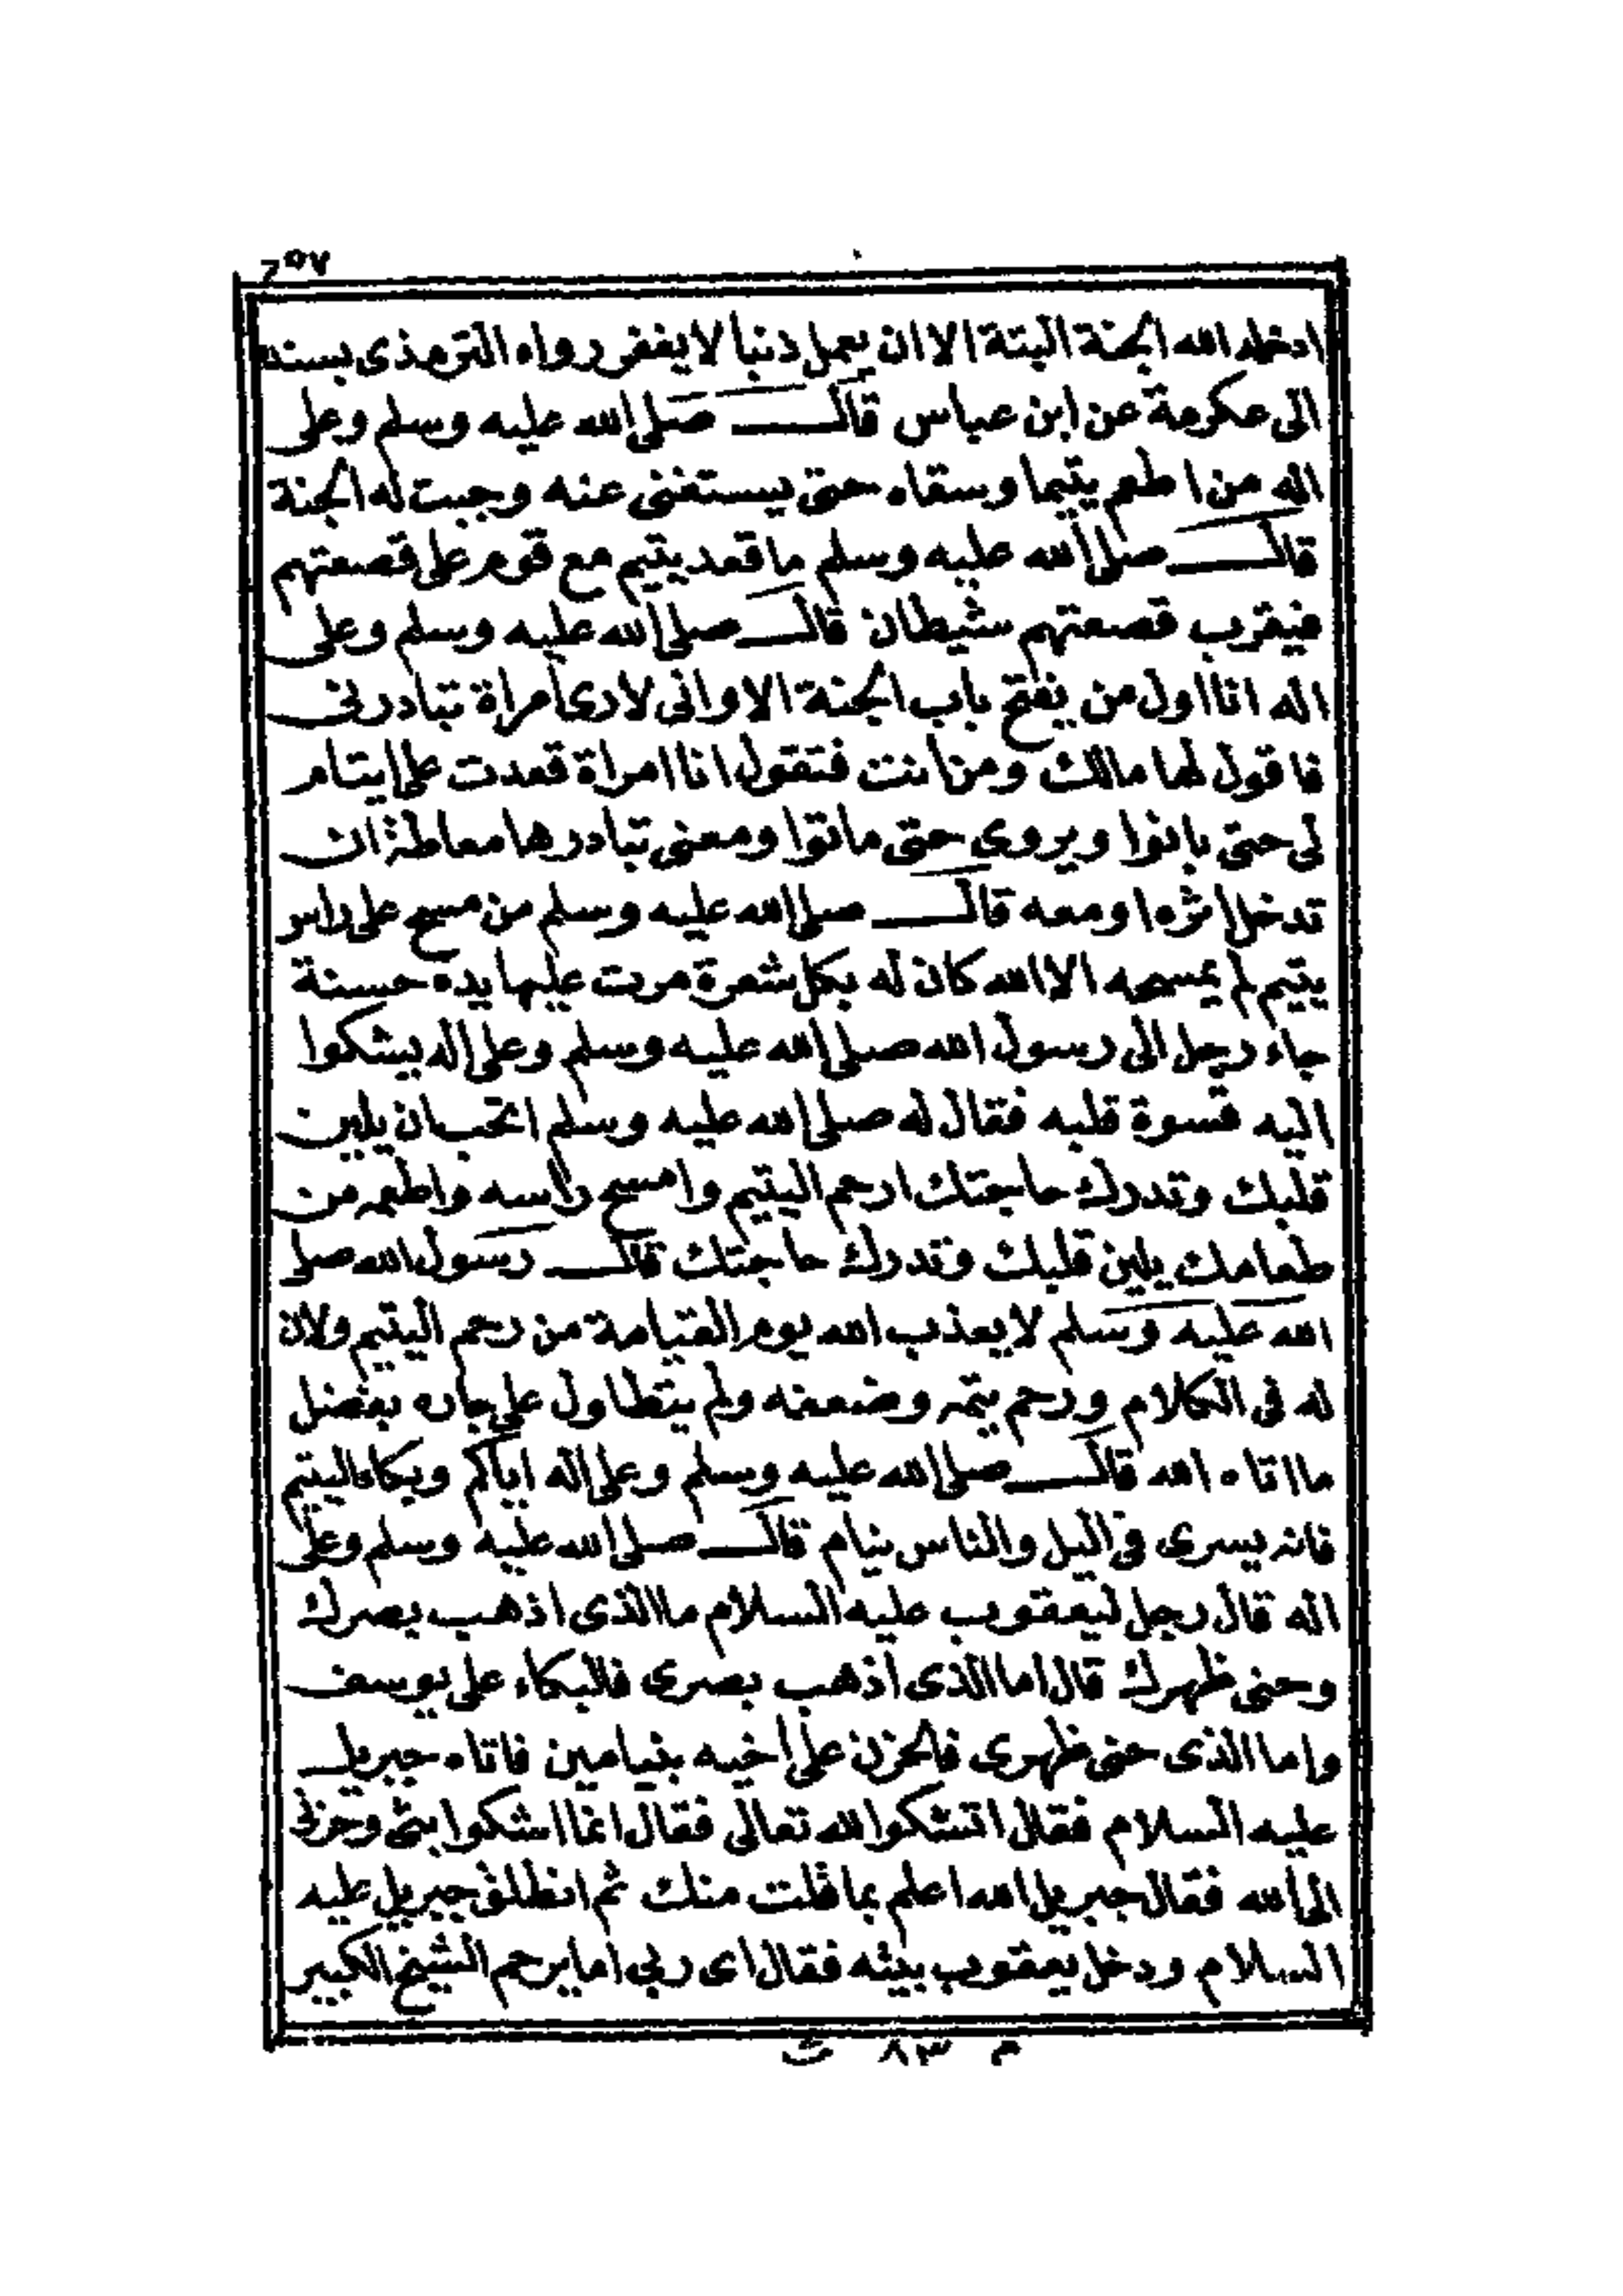 ٦٥٧
ادخله الله الجنة البتة الا ان يعمل ذنبا لا يغفر رواه الترمذى بسنده
الى عكرمة عن ابن عباس قال صلى الله عليه وسلم وعلى
اله من اطعم يتيما وسقاه حتى يستغنى عنه وجبت له الجنة
قال صلى الله عليه وسلم ما قعد يتيم مع قوم على قصعتهم
فيقرب قصعتهم شيطان قال صلى الله عليه وسلم وعلى
اله انا اول من يفتح باب الجنة الا وانى لارى امراة تبادرنى
فاقول لها مالك ومن انت فتقول انا امراة قعدت على ايتام
لى حتى بانوا ويروى حتى ماتوا ومعنى تبادرها معاطة ان
تدخل اثره او معه قال صلى الله عليه وسلم من مسح على راس
يتيم لم يمسحه الا الله كان له بكل شعرة مرت عليها يده حسنة
جاء رجل الى رسول الله صلى الله عليه وسلم وعلى اله يشكوا
اليه قسوة قلبه فقال له صلى الله عليه وسلم اتحب ان يلين
قلبك وتدرك حاجتك ارحم اليتيم وامسح راسه واطعمه من
طعامك يلين قلبك وتدرك حاجتك قال رسول الله صلى
الله عليه وسلم لا يعذب الله يوم القيامة من رحم اليتيم ولان
له فى الكلام ورحم يتمه وضعفه ولم يتطاول على جاره بفضل
ما اتاه الله قال صلى الله عليه وسلم وعلى اله اياكم وبكاء اليتيم
فانه يسرى فى اليل والناس نيام قال صلى الله عليه وسلم وعلى
اله قال رجل ليعقوب عليه السلام ما الذى اذهب بصرك
وحنى ظهرك قال اما الذى اذهب بصرى فالبكاء على يوسف
واما الذى حنى ظهرى فالحزن على اخيه بنيامين فاتاه جبريل
عليه السلام فقال اتشكوا الله تعالى فقال انما اشكوا بثى وحزنى
الى الله فقال جبريل الله اعلم بما قلت منك ثم انطلق جبريل عليه
السلام ودخل يعقوب بيته فقال اى ربى اما يرحم الشيخ الكبير
م ٨٣ ث